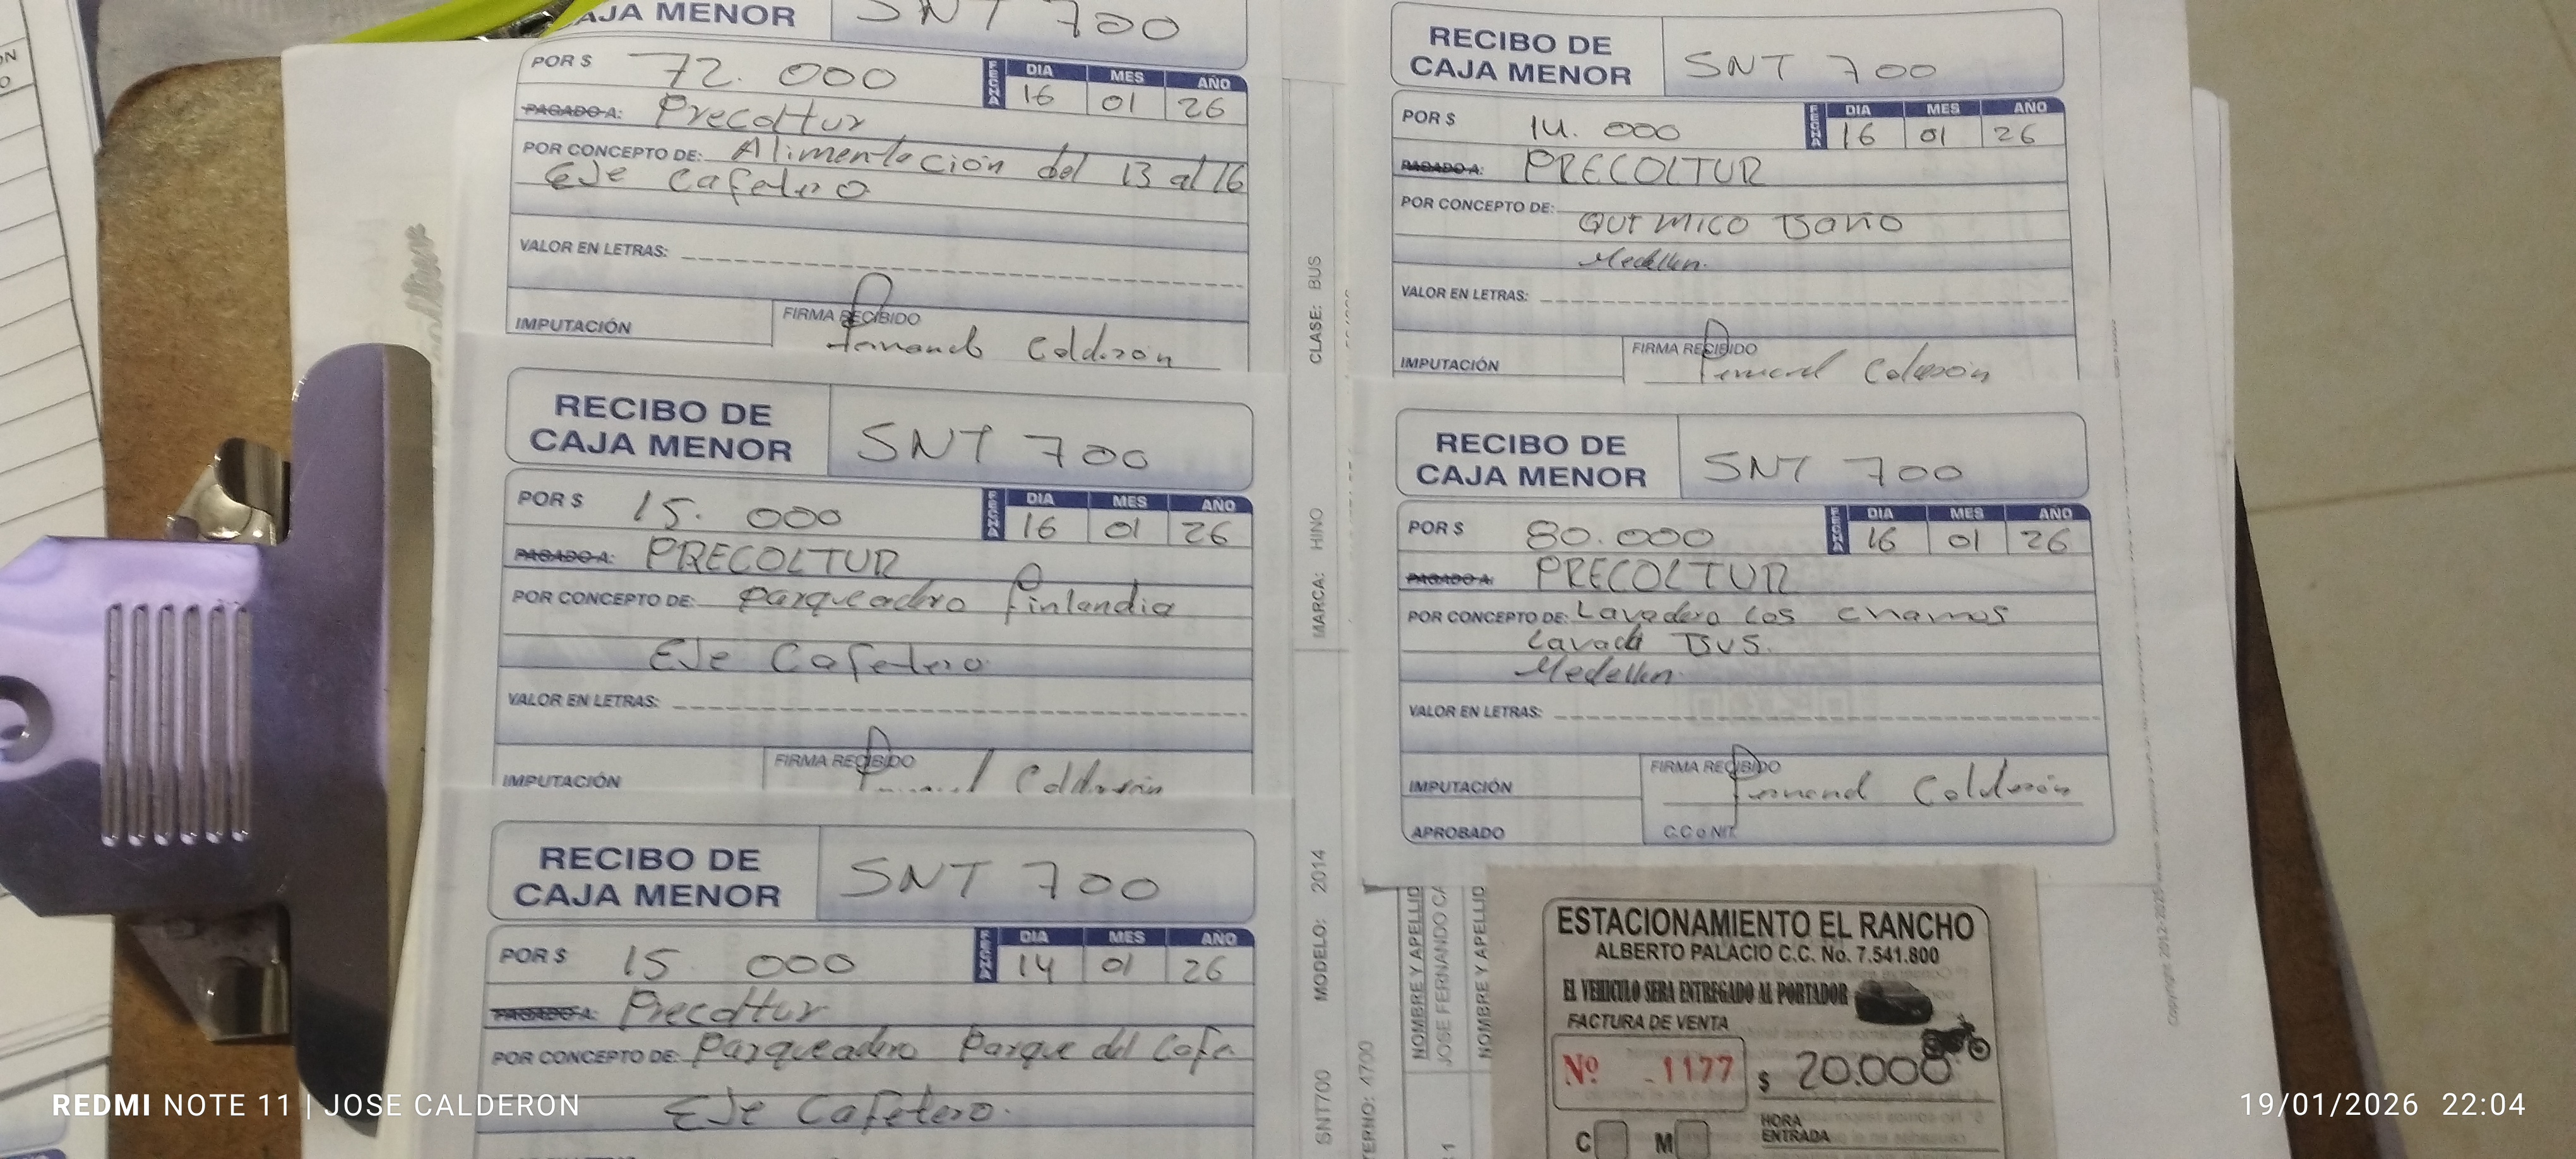 CAJA MENOR
SNT 700
POR $ 72.000
FECHA
DIA MES AÑO
16 01 26
PAGADO A: Precoltur
POR CONCEPTO DE: Alimentación del 13 al 16
Eje Cafetero
VALOR EN LETRAS:
IMPUTACIÓN
FIRMA RECIBIDO
Fernando Calderón
RECIBO DE
CAJA MENOR
SNT 700
POR $ 15.000
FECHA
DIA MES AÑO
16 01 26
PAGADO A: PRECOLTUR
POR CONCEPTO DE: Parqueadero Finlandia
Eje Cafetero
VALOR EN LETRAS:
IMPUTACIÓN
FIRMA RECIBIDO
Calderón
RECIBO DE
CAJA MENOR
SNT 700
POR $ 15.000
FECHA
DIA MES AÑO
14 01 26
PAGADO A: Precoltur
POR CONCEPTO DE: Parqueadero Parque del Cafe
Eje Cafetero.
RECIBO DE
CAJA MENOR
SNT 700
POR $ 14.000
FECHA
DIA MES AÑO
16 01 26
PAGADO A: PRECOLTUR
POR CONCEPTO DE:
QUIMICO Baño
Medellin.
VALOR EN LETRAS:
IMPUTACIÓN
FIRMA RECIBIDO
Fernand Calderón
RECIBO DE
CAJA MENOR
SNT 700
POR $ 80.000
FECHA
DIA MES AÑO
16 01 26
PAGADO A: PRECOLTUR
POR CONCEPTO DE: Lavadero Los chamos
Lavada BUS.
Medellin.
VALOR EN LETRAS:
IMPUTACIÓN
FIRMA RECIBIDO
Fernand Calderón
APROBADO
C.C o NIT.
CLASE: BUS
MARCA: HINO
MODELO: 2014
SNT700
TERNO: 4700
NOMBRE Y APELLID
JOSE FERNANDO CA
NOMBRE Y APELLID
ESTACIONAMIENTO EL RANCHO
ALBERTO PALACIO C.C. No. 7.541.800
EL VEHICULO SERA ENTREGADO AL PORTADOR
FACTURA DE VENTA
Nº 1177
$ 20.000
C M
HORA
ENTRADA
REDMI NOTE 11 | JOSE CALDERON
19/01/2026 22:04